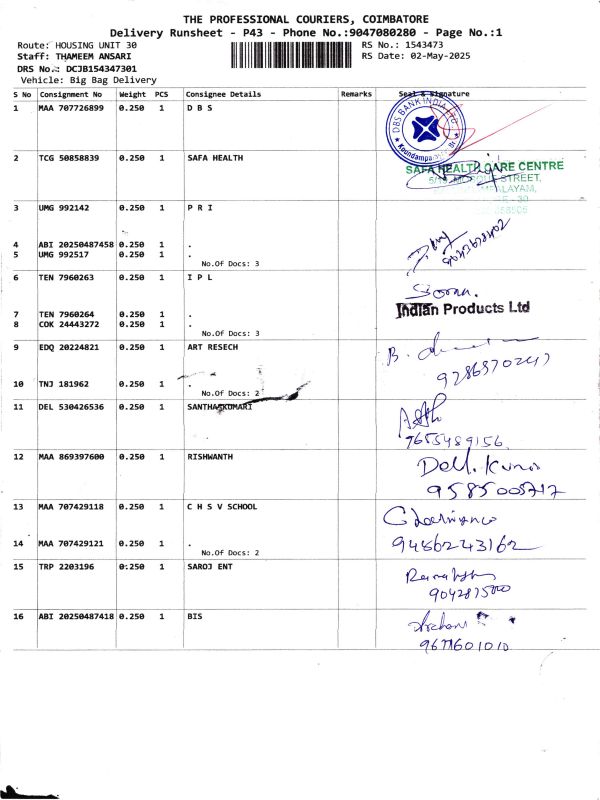 THE PROFESSIONAL COURIERS, COIMBATORE
Delivery Runsheet - P43 - Phone No.:9047080280 - Page No.:1
Route: HOUSING UNIT 30 RS No.: 1543473
Staff: THAMEEM ANSARI RS Date: 02-May-2025
DRS No.: DCJB154347301
Vehicle: Big Bag Delivery
S No Consignment No Weight PCS Consignee Details Remarks Seal & Signature
1 MAA 707726899 0.250 1 D B S
DBS BANK INDIA LTD
2 TCG 50858839 0.250 1 SAFA HEALTH
SAFA HEALTH CARE CENTRE
STREET,
3 UMG 992142 0.250 1 P R I
4 ABI 20250487458 0.250 1 .
5 UMG 992517 0.250 1 .
No.Of Docs: 3
6 TEN 7960263 0.250 1 I P L
Indian Products Ltd
7 TEN 7960264 0.250 1 .
8 COK 24443272 0.250 1 .
No.Of Docs: 3
9 EDQ 20224821 0.250 1 ART RESECH
10 TNJ 181962 0.250 1 .
No.Of Docs: 2
11 DEL 530426536 0.250 1 SANTHASKUMARI
7655489156
12 MAA 869397600 0.250 1 RISHWANTH
9585008717
13 MAA 707429118 0.250 1 C H S V SCHOOL
14 MAA 707429121 0.250 1 . 9486243162
No.Of Docs: 2
15 TRP 2203196 0.250 1 SAROJ ENT
16 ABI 20250487418 0.250 1 BIS